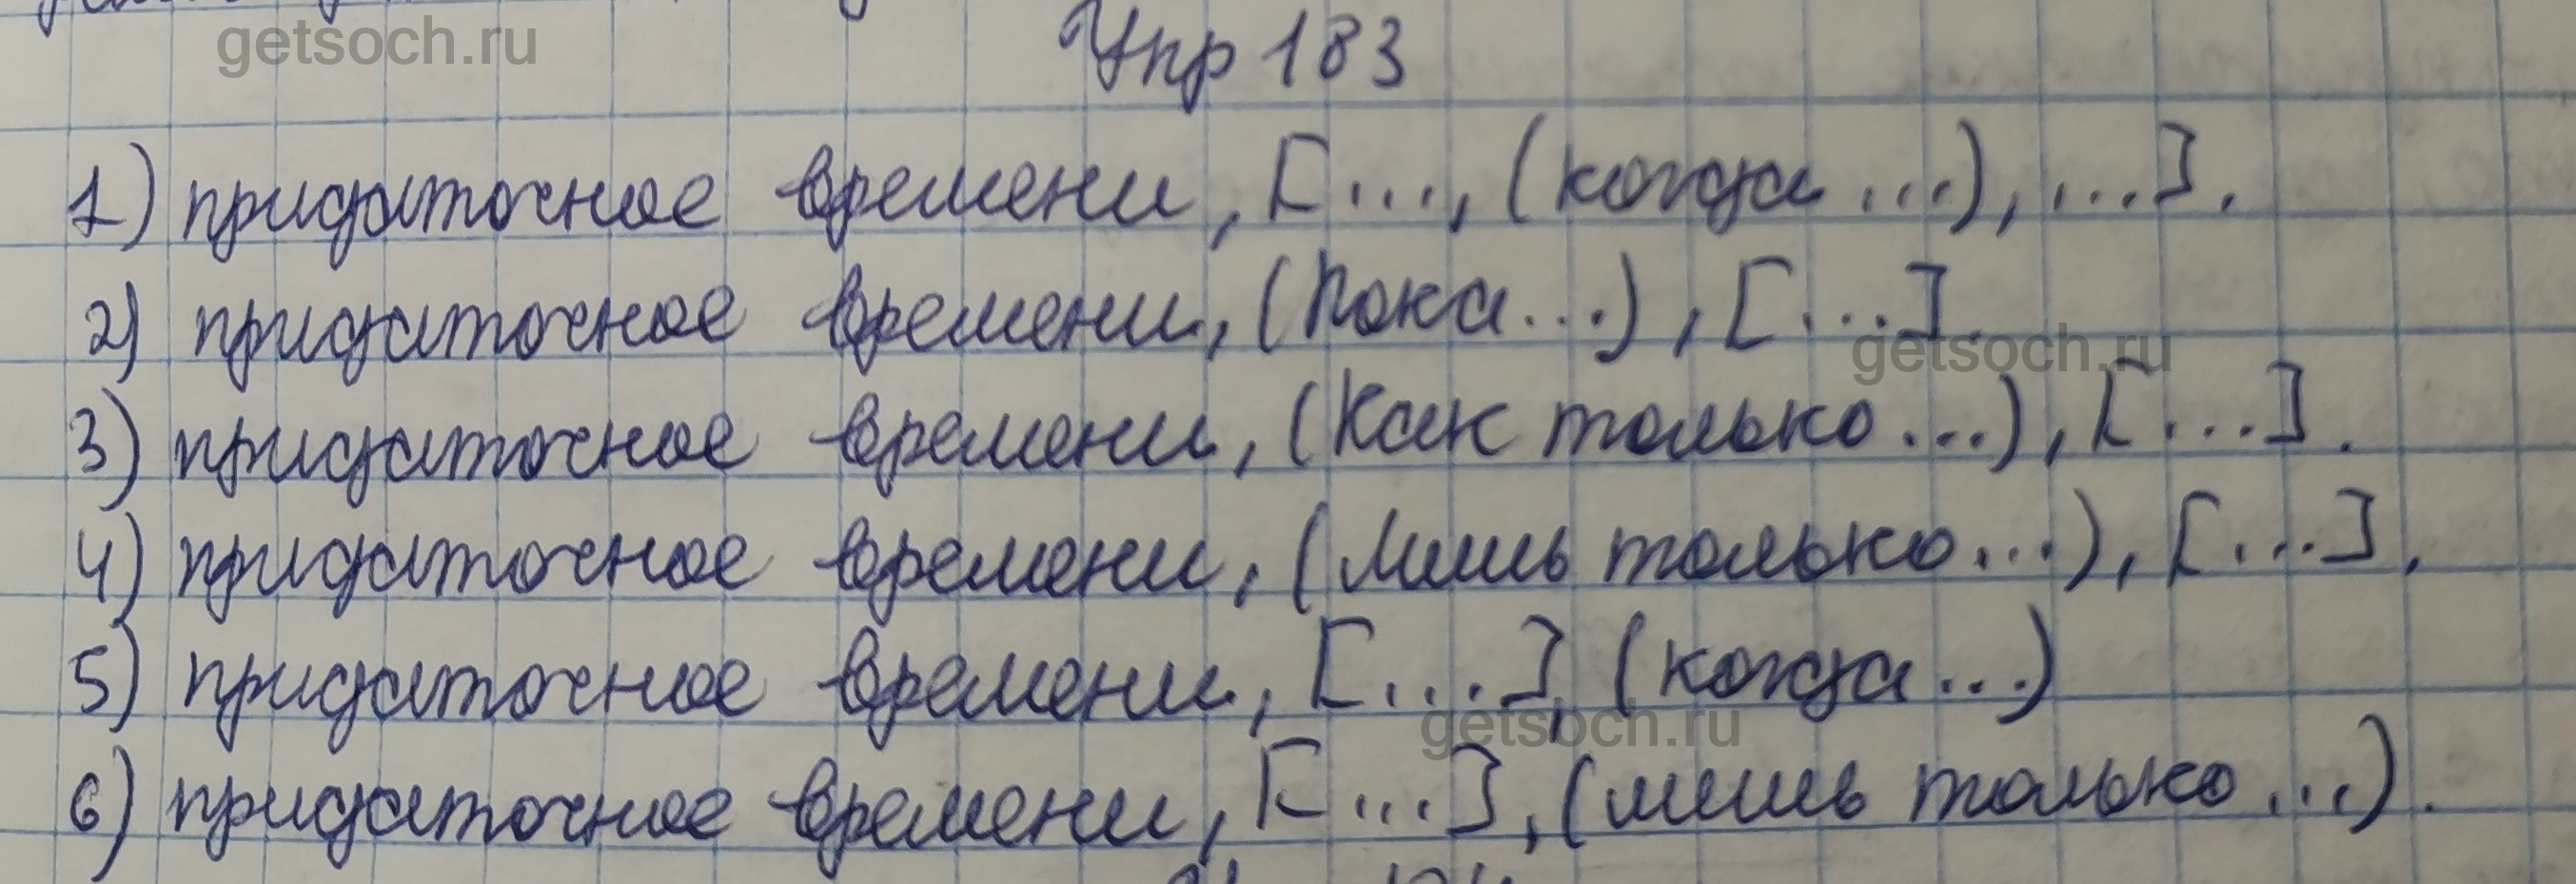 getsoch.ru
Упр 183
1) придаточное времени, [..., (когда ...), ...].
2) придаточное времени, (Пока...), [...].
getsoch.ru
3) придаточное времени, (Как только ...), [...].
4) придаточное времени, (Лишь только ...), [...].
5) придаточное времени, [...], (когда ...)
getsoch.ru
6) придаточное времени, [...], (лишь только ...).